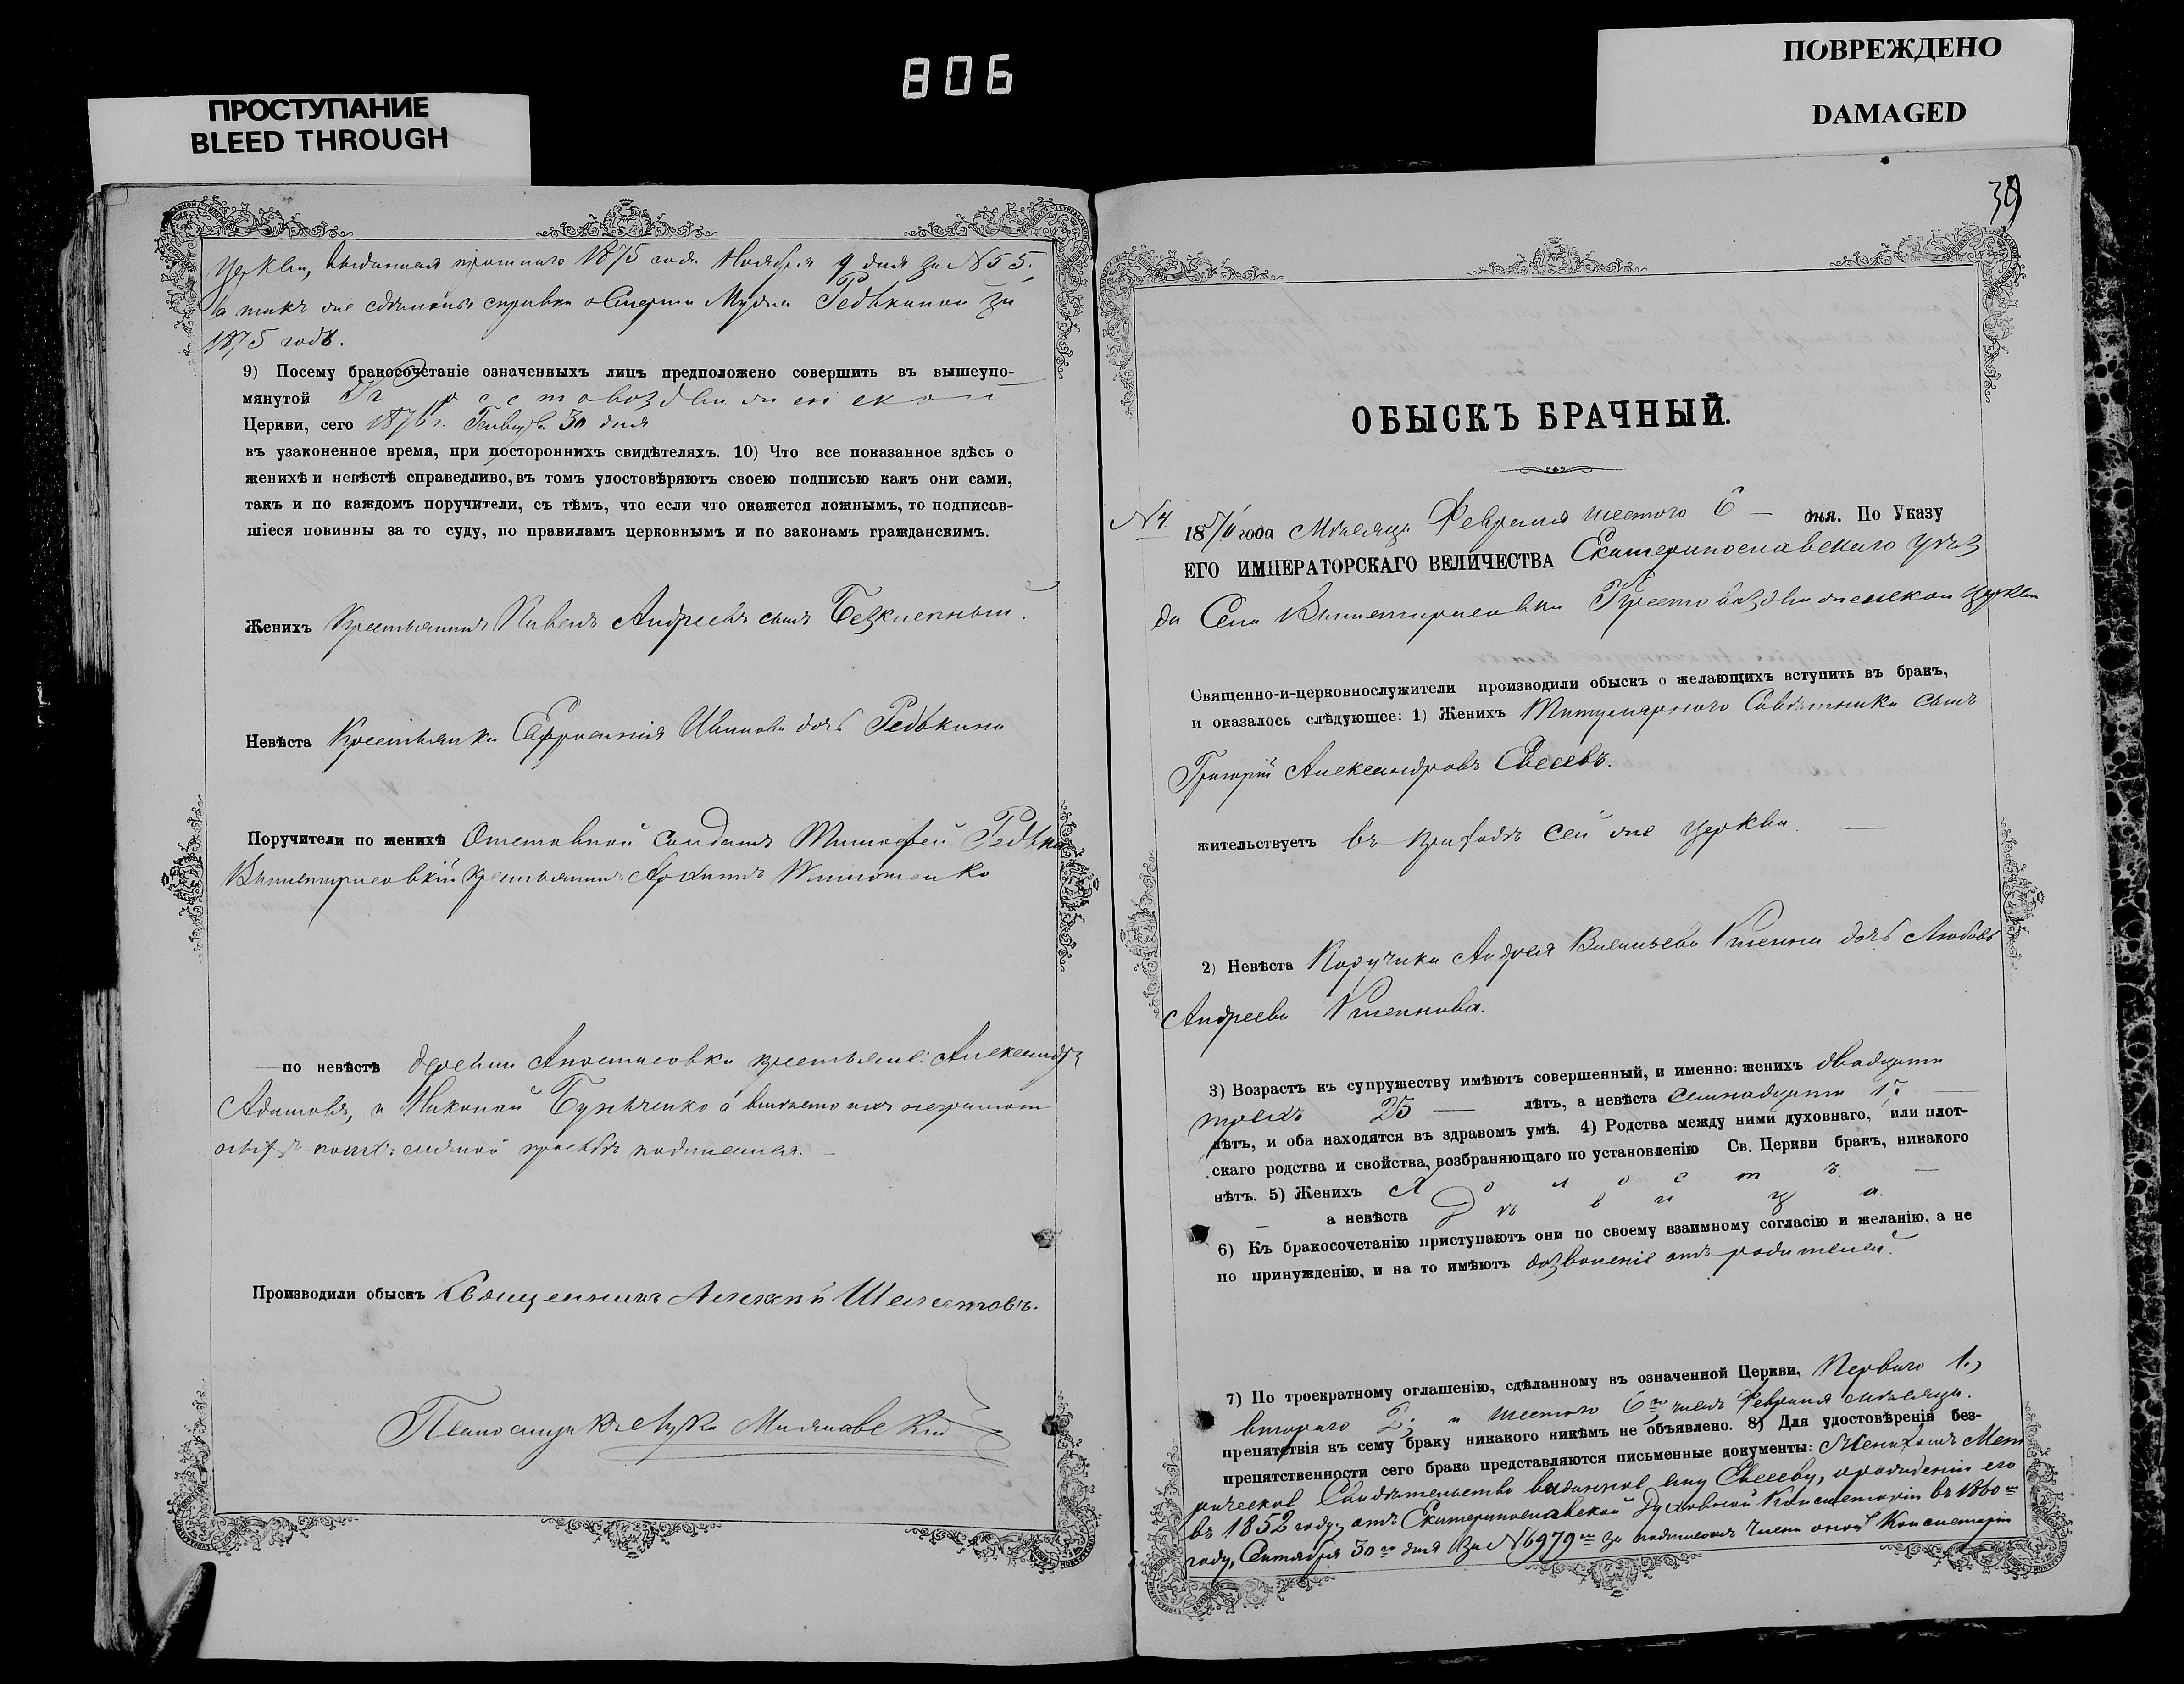 806
ПРОСТУПАНИЕ
BLEED THROUGH
ПОВРЕЖДЕНО
DAMAGED
Церкви, выданная прошлаго 1875 года Ноября 9 дня за №55.
а такъ же сдѣланная справка о смерти Мужа Редькиной за
1875 годъ.
9) Посему бракосочетаніе означенныхъ лицъ предположено совершить въ вышеупо-
мянутой Крестовоздвиженской
Церкви, сего 1876 г. Генваря 30 дня
въ узаконенное время, при постороннихъ свидѣтеляхъ. 10) Что все показанное здѣсь о
женихѣ и невѣстѣ справедливо, въ томъ удостовѣряютъ своею подписью какъ они сами,
такъ и по каждомъ поручители, съ тѣмъ, что если что окажется ложнымъ, то подписав-
шіеся повинны за то суду, по правиламъ церковнымъ и по законамъ гражданскимъ.
Женихъ Крестьянинъ Павелъ Андреевъ сынъ Безклепный.
Невѣста Крестьянка Ефросинія Иванова дочь Редькина
Поручители по женихѣ Отставной Солдатъ Тимофей Редька
крестьянинъ
по невѣстѣ деревни Апостоловки крестьяне: Александръ
Адамовъ, и Николай а вмѣсто ихъ неграмот
ныхъ по ихъ личной прозьбѣ подписался.
Производили обыскъ Священникъ Алексѣй Шелестовъ.
Псаломщикъ Лука
39
ОБЫСКЪ БРАЧНЫЙ.
№ 4. 1876 года Мѣсяца Февраля шестого 6 — дня. По Указу
ЕГО ИМПЕРАТОРСКАГО ВЕЛИЧЕСТВА Екатеринославскаго уѣз
да Села Вышетарасовки Крестовоздвиженской церкви
Священно-и-церковнослужители производили обыскъ о желающихъ вступить въ бракъ,
и оказалось слѣдующее: 1) Женихъ Титулярного Совѣтника сынъ
Григорій Александровъ Евсеевъ.
жительствуетъ въ приходѣ сей же церкви. —
2) Невѣста Поручика Андрея Васильева дочь Любовь
Андреева
3) Возрастъ къ супружеству имѣютъ совершенный, и именно: женихъ двадцати
трехъ 23 — лѣтъ, а невѣста семнадцати 17 —
лѣтъ, и оба находятся въ здравомъ умѣ. 4) Родства между ними духовнаго, или плот-
скаго родства и свойства, возбраняющаго по установленію Св. Церкви бракъ, никакого
нѣтъ. 5) Женихъ Холостъ. —
— а невѣста Дѣвица.
6) Къ бракосочетанію приступаютъ они по своему взаимному согласію и желанію, а не
по принужденію, и на то имѣютъ дозволеніе отъ родителей.
7) По троекратному оглашенію, сдѣланному въ означенной Церкви, Первого 1.,
второго 2; и шестого 6го числъ Февраля мѣсяца.
препятствія къ сему браку никакого никѣмъ не объявлено. 8) Для удостовѣренія без-
препятственности сего брака представляются письменные документы: Женихомъ Мет
рическое Свидѣтельство выданное ему Евсееву, о рожденіи его
въ 1852 году, отъ Екатеринославской Духовной Консисторіи въ 1860м
году, Сентября 30го дня за №6979м за подписомъ Члена оной Консисторіи